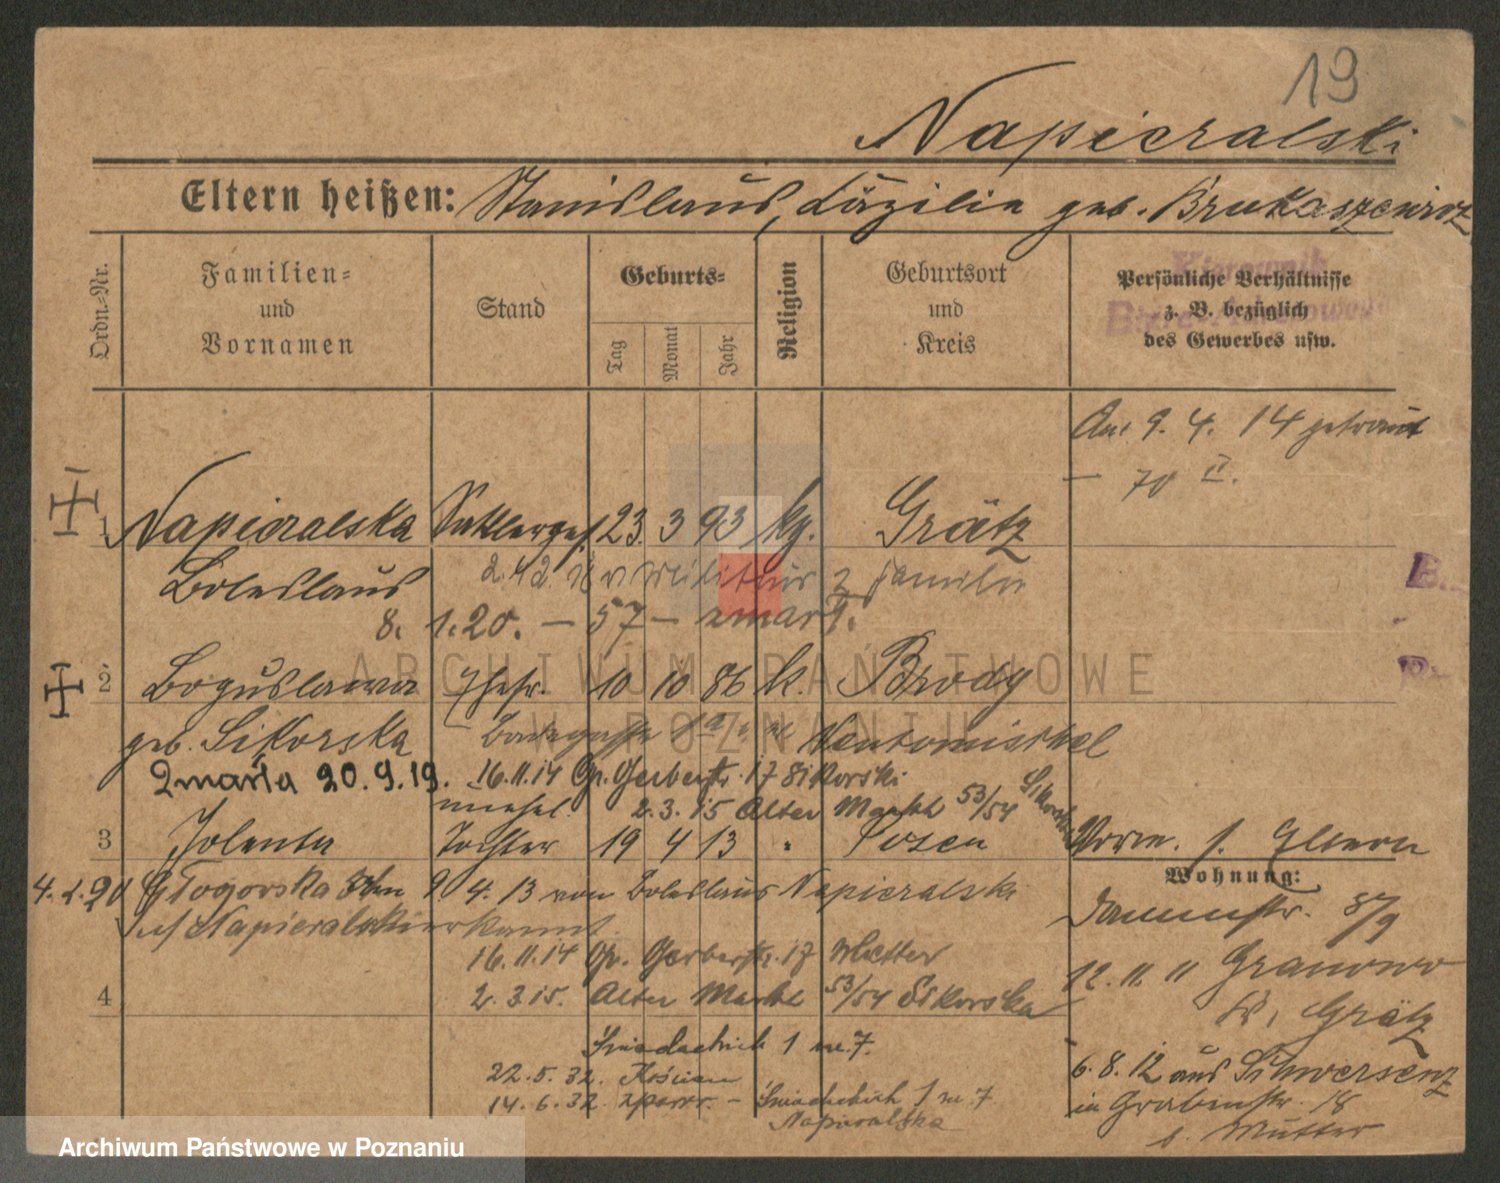 19
Napieralski
Eltern heißen: Stanislaus, Cäzilie geb. Brukaszewicz
Ordn.-Nr.
Familien-
und
Vornamen
Stand
Geburts-
Tag
Monat
Jahr
Religion
Geburtsort
und
Kreis
Persönliche Verhältnisse
z. B. bezüglich
des Gewerbes usw.
Kierownik
Am 9. 4. 14 getraut
— 70 II.
1 Napieralska Sattlerges. 23. 3 93 kg. Grätz
Boleslaus 2.42 Militär z Familie
8. 1.20. — 57 — zmarł.
B.
2 Boguslawa Ehefr. 10 10 86 k. Brody
geb. Sikorska Neutomischel
Zmarła 20.9.19. 16.11.14 Gr. Gerberstr. 17 Sikorski
2.3.15 Alter Markt 53/54 Sikorska
3 Jolenta Tochter 19 4 13 " Posen
Vorm. s. Eltern
Wohnung:
Głogorska 4. 13 von Boleslaus Napieralski
Napieralski erkannt.
Dammstr. 8/9
16.11.14 Gr. Gerberstr. 17 Mutter
12.11.11 Granowo
4 2.3.15. Alter Markt 53/54 Sikorska
Kr. Grätz
Śniadeckich 1 m.7.
22.5.32. Kościan
6.8.12 aus Schwersenz
14.6.32. zpowr. — Śniadeckich 1 m. 7
in Grabenstr. 18
Napieralska
b. Mutter
ARCHIWUM PAŃSTWOWE
W POZNANIU
Archiwum Państwowe w Poznaniu